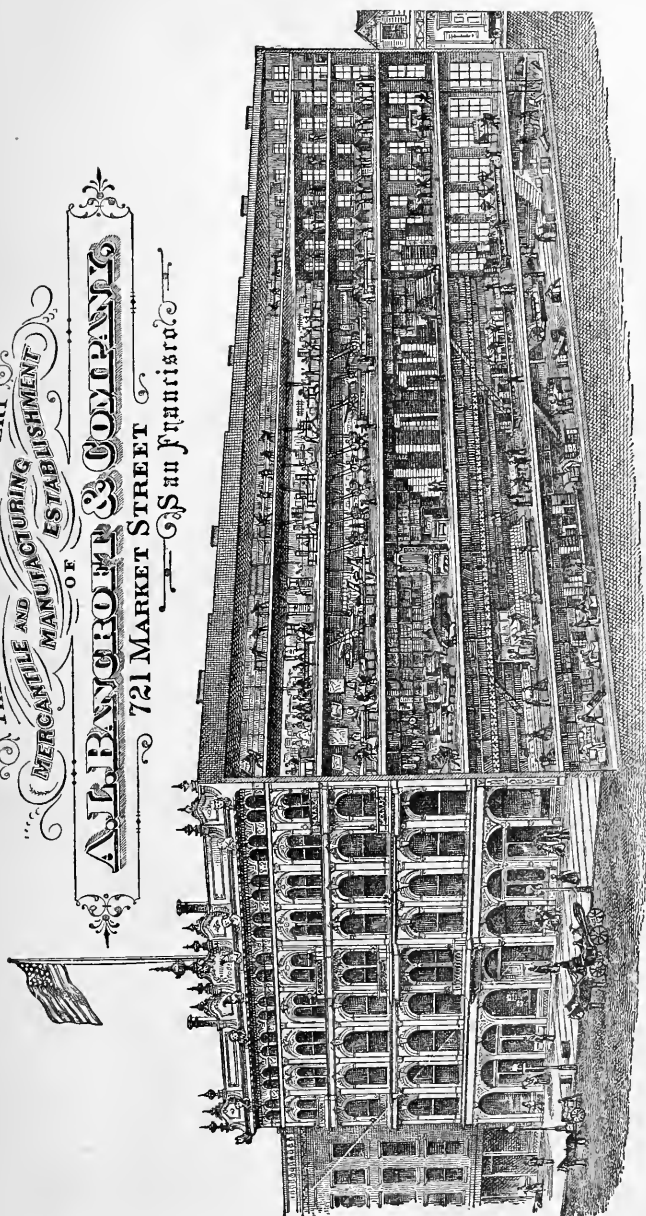 MERCANTILE AND
MANUFACTURING
ESTABLISHMENT
OF
A. L. BANCROFT & COMPANY,
721 MARKET STREET
San Francisco